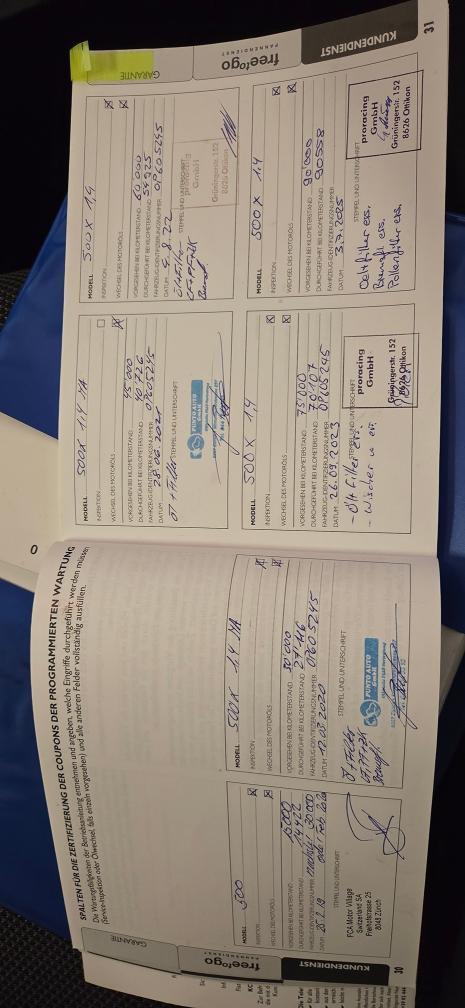 SPALTEN FÜR DIE ZERTIFIZIERUNG DER COUPONS DER PROGRAMMIERTEN WARTUNG
Die Wartungsfälligkeiten der Betriebsanleitung entnehmen und angeben, welche Eingriffe durchgeführt werden müssen
(Service-Inspektion oder Ölwechsel, falls einzeln vorgesehen) und alle anderen Felder vollständig ausfüllen.
MODELL 500
INSPEKTION
WECHSEL DES MOTORÖLS
VORGESEHEN BEI KILOMETERSTAND 15000
DURCHGEFÜHRT BEI KILOMETERSTAND
FAHRZEUG-IDENTIFIZIERUNGSNUMMER
DATUM 25.2.19
STEMPEL UND UNTERSCHRIFT
FCA Motor Village
Switzerland SA
Freihofstrasse 25
8048 Zürich
MODELL 500X 1.4 MA
INSPEKTION
WECHSEL DES MOTORÖLS
VORGESEHEN BEI KILOMETERSTAND 30'000
DURCHGEFÜHRT BEI KILOMETERSTAND 27'116
FAHRZEUG-IDENTIFIZIERUNGSNUMMER 0P605245
DATUM 12.02.2020
STEMPEL UND UNTERSCHRIFT
PUNTO AUTO
GmbH
GARANTIE
freetogo
KUNDENDIENST
30
MODELL 500X 1.4 MA
INSPEKTION
WECHSEL DES MOTORÖLS
VORGESEHEN BEI KILOMETERSTAND 45'000
DURCHGEFÜHRT BEI KILOMETERSTAND 40'726
FAHRZEUG-IDENTIFIZIERUNGSNUMMER 0P605245
DATUM 28.06.2021
STEMPEL UND UNTERSCHRIFT
Öl + Filter
PUNTO AUTO
GmbH
MODELL 500X 1.4
INSPEKTION
WECHSEL DES MOTORÖLS
VORGESEHEN BEI KILOMETERSTAND 60000
DURCHGEFÜHRT BEI KILOMETERSTAND
FAHRZEUG-IDENTIFIZIERUNGSNUMMER 0P605245
DATUM
STEMPEL UND UNTERSCHRIFT
Ölfilter
proracing
GmbH
Grüningerstr. 152
8626 Ottikon
MODELL 500X 1.4
INSPEKTION
WECHSEL DES MOTORÖLS
VORGESEHEN BEI KILOMETERSTAND 75'000
DURCHGEFÜHRT BEI KILOMETERSTAND 70'107
FAHRZEUG-IDENTIFIZIERUNGSNUMMER 0P605245
DATUM 26.09.2023
STEMPEL UND UNTERSCHRIFT
- Ölfilter ers.
- Wischer v. ers.
proracing
GmbH
Grüningerstr. 152
8626 Ottikon
MODELL 500X 1.4
INSPEKTION
WECHSEL DES MOTORÖLS
VORGESEHEN BEI KILOMETERSTAND 90'000
DURCHGEFÜHRT BEI KILOMETERSTAND 90558
FAHRZEUG-IDENTIFIZIERUNGSNUMMER
DATUM 3.7.2025
STEMPEL UND UNTERSCHRIFT
Oelfilter ers.
Bremsfl. ers.
Pollenfilter ers.
proracing
GmbH
Grüningerstr. 152
8626 Ottikon
GARANTIE
freetogo
PANNENDIENST
KUNDENDIENST
31